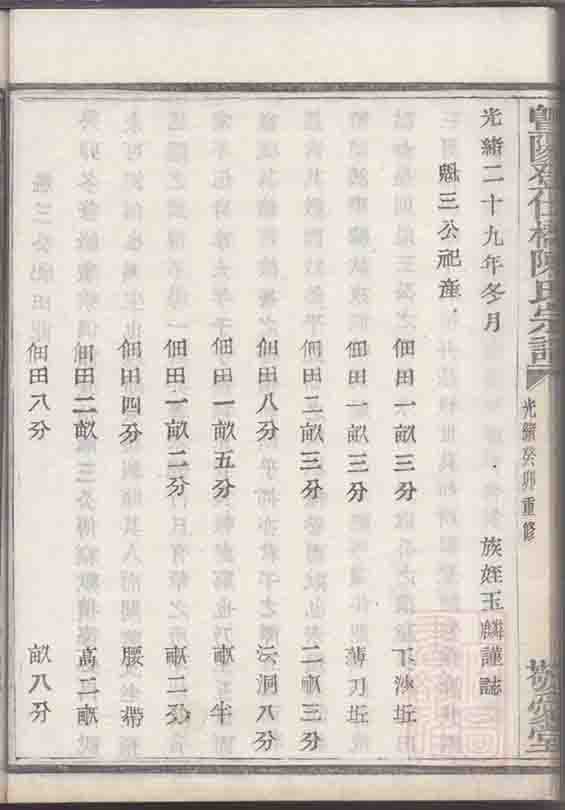 暨陽孝仁橋陳氏宗譜
光緒癸卯重修
光緒二十九年冬月 族姪玉麟謹誌
魁三公祀產
佃田一畝三分 下沙坵
佃田一畝三分 薄刀坵
佃田二畝三分 二畝三分
佃田八分 云洞八分
佃田一畝五分 畝半
佃田一畝二分 畝二分
佃田四分 腰帶
佃田二畝 高二畝
佃田八分 畝八分